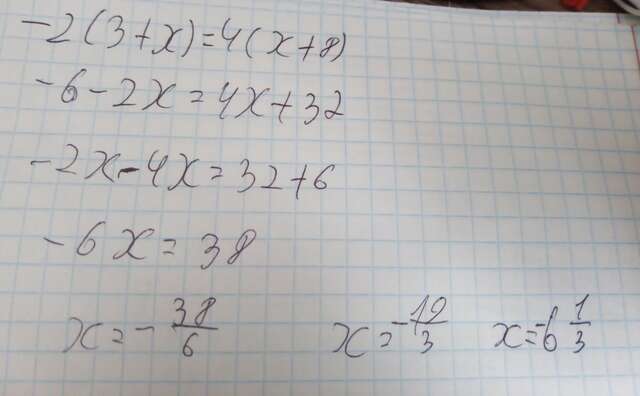 -2(3+x)=4(x+8)
-6-2x=4x+32
-2x-4x=32+6
-6x=38
x=-38/6 x=-19/3 x=-6 1/3